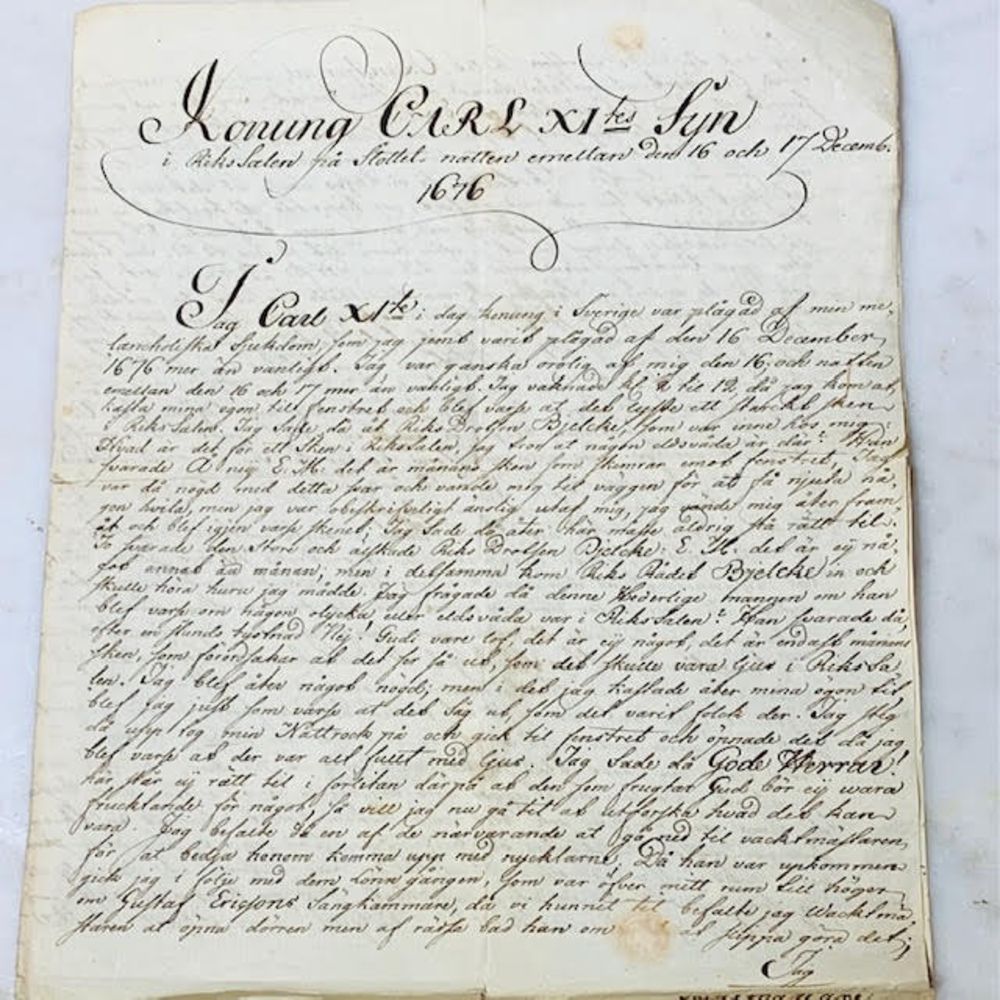 Konung CARL XItes Syn
i RiksSalen på Slottet natten emellan den 16 och 17 Decemb.
1676
Jag Carl XIte i dag konung i Sverige var plågad af min me-
lancholiska Sjukdom, som jag jemt varit plågad af den 16 December
1676 mer än vanligt. Jag var ganska orolig af mig den 16 och natten
emellan den 16 och 17 mer än vanligt. Jag vaknade kl. til 12, då jag kom at
kasta mina ögon til fenstret och blef varse at det lyste ett starckt sken
i RiksSalen. Jag Sade då åt Riks Drotsen Bjelcke, som var inne hos mig:
Hvad är det för ett Sken i RiksSalen, jag tror at någon eldsvåda är där? Han
svarade A nej E. M. det är månans sken som skimrar emot fenstret, Jag
var då nögd med detta svar och vände mig til väggen för at få njuta nå-
gon hvila, men jag var obeskrifveligt änslig utaf mig, jag vände mig åter fram-
åt och blef igjen varse skenet; Jag Sade då åter: här måste aldrig stå rätt til.
Jo svarade den Store och älskade Riks Drotsen Bjelcke: E. M. det är ej nå-
got annat än månan; men i detsamma kom Riks Rådet Bjelcke in och
skulle höra huru jag mådde. Jag frågade då denne Hederlige mannen om han
blef varse om någon olycka, eller eldsvåda var i RiksSalen? Han svarade då,
efter en stunds tystnad Nej. Gudi vare lof, det är ej något, det är endast månans
sken, som förordsakar at det ser så ut, som det skulle vara ljus i RiksSa-
len. Jag blef åter något nögd; men i det jag kastade åter mina ögon dit
blef jag just som varse at det såg ut, som det varit folck der. Jag steg
då upp tog min Nattrock på och gick til fenstret och öpnade det då jag
blef varse at der var alt fullt med ljus. Jag Sade då Gode Herrar!
här står ej rätt til i förlitan därpå at den som frugtar Gud bör ej wara
frucktande för något, så vill jag nu gå til at utforska hwad det kan
vara. Jag befalte då en af de närvarande at gå ned til vacktmästaren
för at bedja honom komma upp med nycklarne, Då han var upkommen
gick jag i följe med dem Lönn gången, som var öfver mitt rum till höger
om Gustaf Ericsons Sängkammare, då vi hunnit til befalte jag Wacktmä-
staren at öpna dörren men af rädsla bad han om at slippa göra det;
Jag